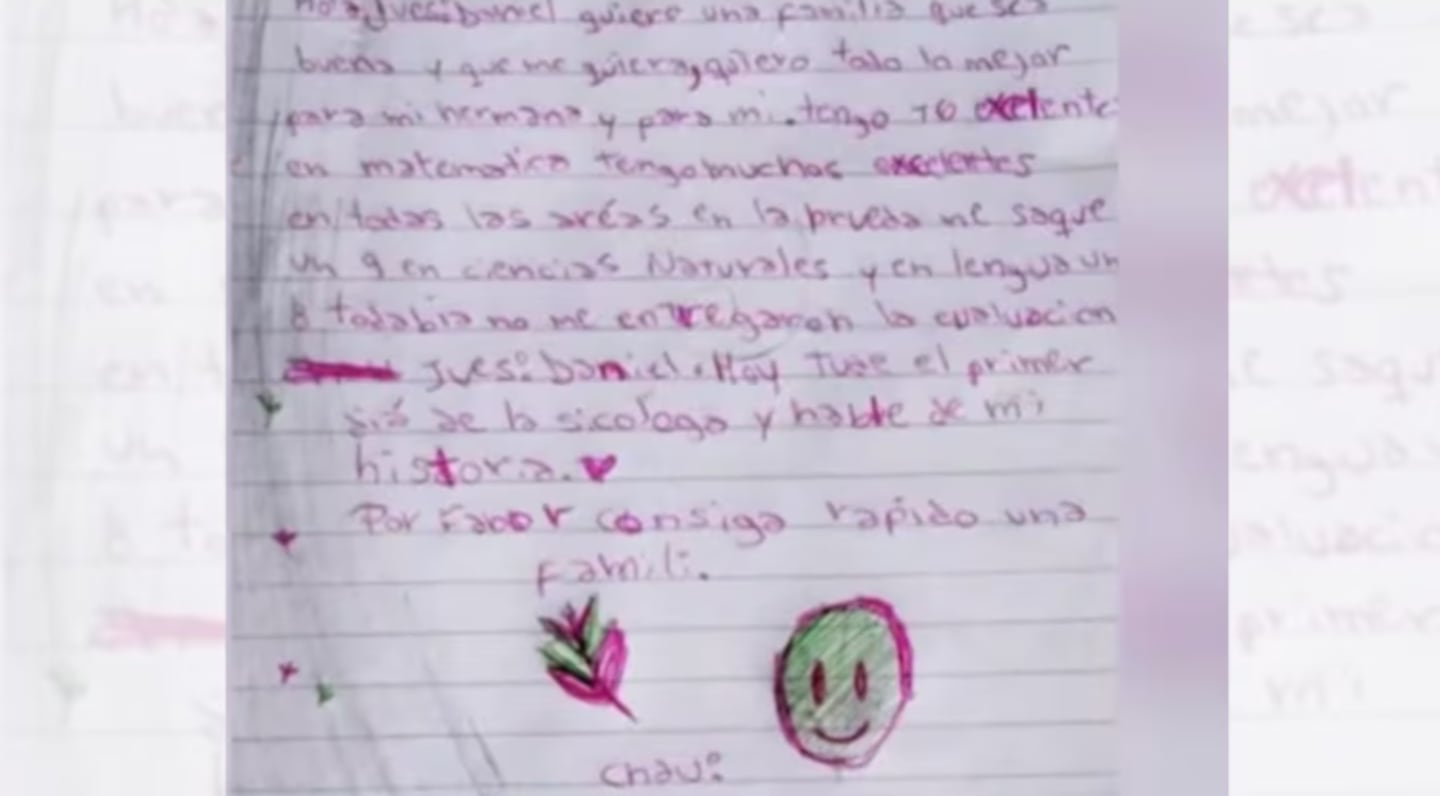 Hola Jues: Daniel quiero una familia que sea
buena y que me quiera, quiero todo lo mejor
para mi hermana y para mi. tengo 10 exelente
en matematica tengo muchos excelentes
en todas las aréas en la prueba me saque
un 9 en ciencias Naturales y en lengua un
8 todabia no me entregaron la evaluacion
Jues: Daniel. Hoy Tuve el primer
día de la sicologa y hable de mi
historia.
Por Fabor consiga rapido una
Famili.
chau: